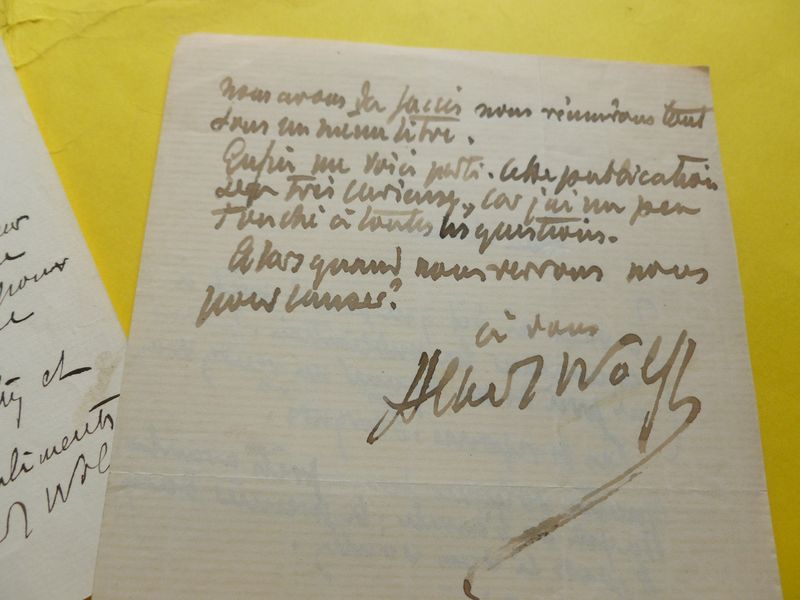 nous avons du succès nous réunirons tout
sous un meme titre.
Enfin me voici parti. Cette publication
sera très curieuse, car j'ai un peu
touché à toutes les questions.
Alors quand nous verrons nous
pour causer?
à vous
Albert Wolff
pour
et